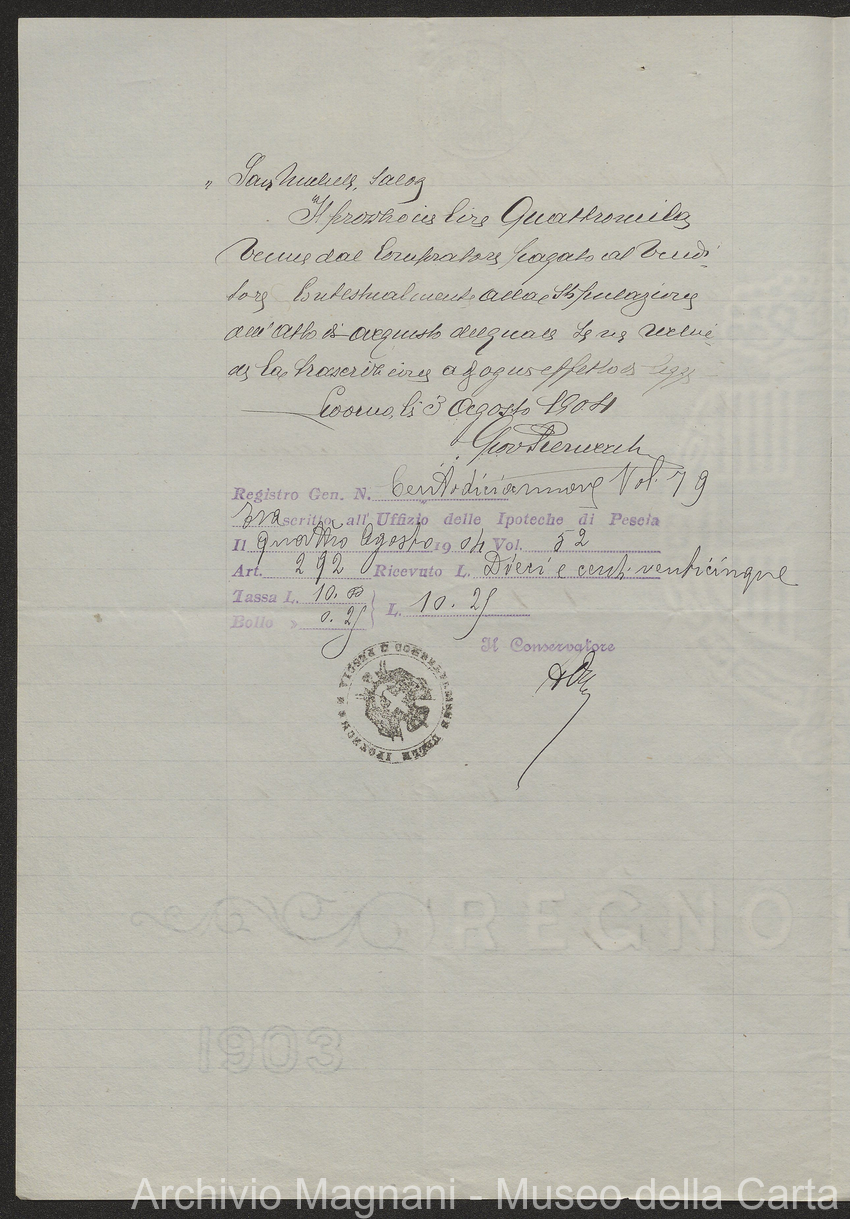 „ San Michele, salvo
Il prezzo in lire Quattromila
venne dal Compratore pagato al Vendi-
tore contestualmente alla stipulazione
dell'atto di acquisto del quale se ne richie-
de la trascrizione a ogni effetto di legge
Livorno, li 3 Agosto 1904
Registro Gen. N. Centodiciannove Vol. 79
Trascritto all' Uffizio delle Ipoteche di Pescia
Il quattro Agosto 1904 Vol. 52
Art. 292 Ricevuto L. Dieci e cent. venticinque
Tassa L. 10.00
Bollo » 0.25 } L. 10.25
Il Conservatore
REGNO D
1903
Archivio Magnani - Museo della Carta